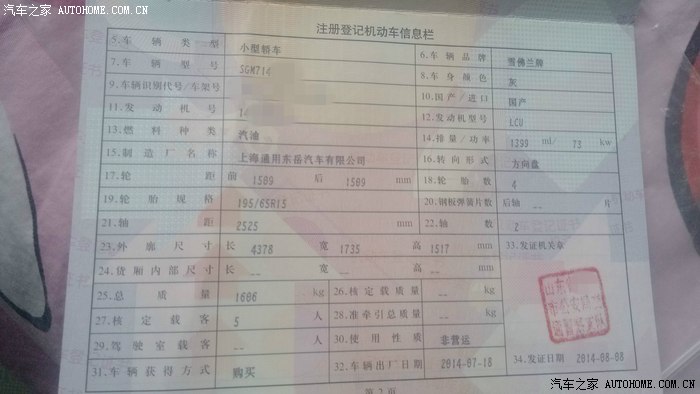 汽车之家 AUTOHOME.COM.CN
注册登记机动车信息栏
5.车辆类型 小型轿车 6.车辆品牌 雪佛兰牌
7.车辆型号 SGM714 8.车身颜色 灰
9.车辆识别代号/车架号 10.国产/进口 国产
11.发动机号 14 12.发动机型号 LCU
13.燃料种类 汽油 14.排量/功率 1399 ml/ 73 kw
15.制造厂名称 上海通用东岳汽车有限公司 16.转向形式 方向盘
17.轮距 前 1509 后 1509 mm 18.轮胎数 4
19.轮胎规格 195/65R15 20.钢板弹簧片数 后轴 -- 片
21.轴距 2525 mm 22.轴数 2
23.外廓尺寸 长 4378 宽 1735 高 1517 mm 33.发证机关章
24.货厢内部尺寸 长 -- 宽 -- 高 -- mm
25.总质量 1606 kg 26.核定载质量 -- kg
27.核定载客 5 人 28.准牵引总质量 -- kg
29.驾驶室载客 -- 人 30.使用性质 非营运
31.车辆获得方式 购买 32.车辆出厂日期 2014-07-18 34.发证日期 2014-08-08
第2页
汽车之家 AUTOHOME.COM.CN